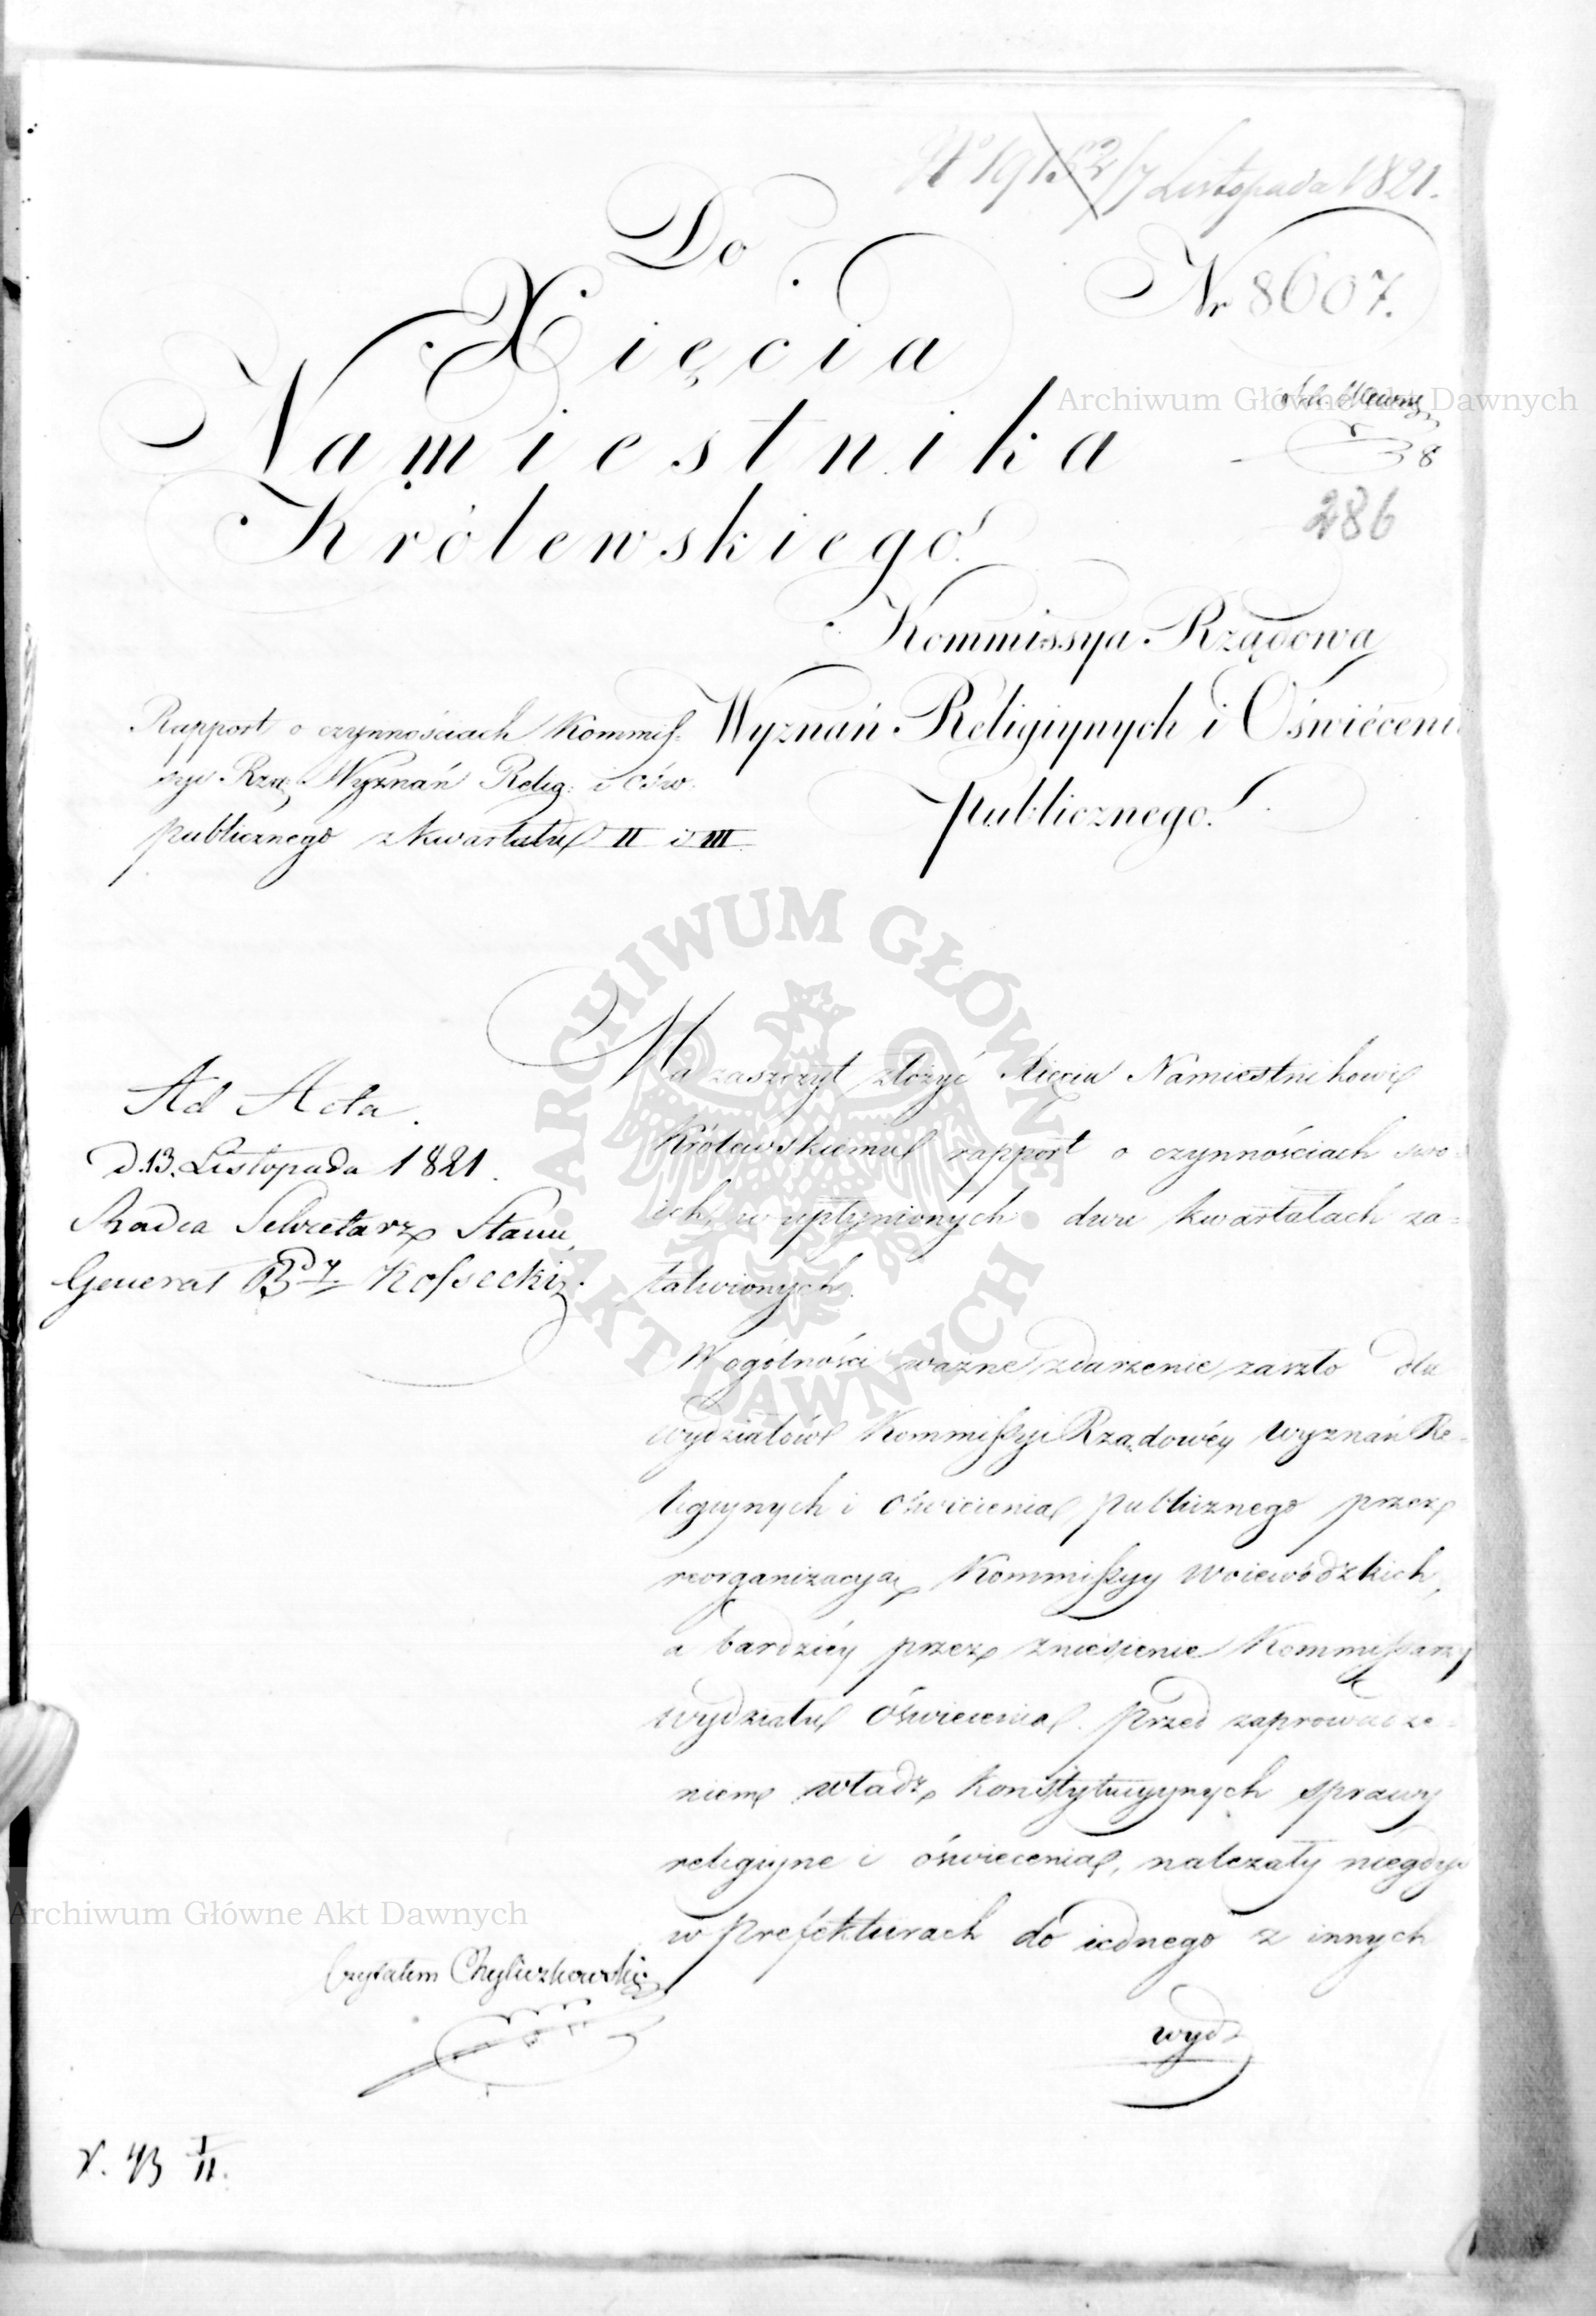 N 19152/7 Listopada 1821.
Do
Nr 8607.
Xięcia
Namiestnika
Królewskiego
8
286
Kommissya Rządowa
Wyznań Religiynych i Oświéceni
Publicznego.
Rapport o czynnościach Kommis=
syi Rzą: Wyznań Relig: i Ośw:
publicznego z kwartału II i III
Ma zaszczyt złożyć Xięciu Namiestnikowi
Królewskiemu rapport o czynnościach swo=
ich, w upłynionych dwu kwartałach za=
łatwionych.
Ad Acta.
d. 13. Listopada 1821.
Radca Sekretarz Stanu
Generał Bdy Kossecki
W ogólności ważne zdarzenie zaszło dla
wydziałów Kommissyi Rządowéy wyznań Re=
ligiynych i oświécenia publicznego przez
reorganizacyą Kommissyy Woiewódzkich,
a bardziéy przez zniesienie Kommissarzy
wydziału oświecenia. Przed zaprowadze=
niem władz konstytucyynych sprawy
religiyne i oświecenia, należały niegdyś
w prefekturach do iednego z innych
wydz
Czytałem Chyliczkowski
V. 43 I/II.
Archiwum Główne Akt Dawnych
Archiwum Główne Akt Dawnych
ARCHIWUM GŁÓWNE AKT DAWNYCH